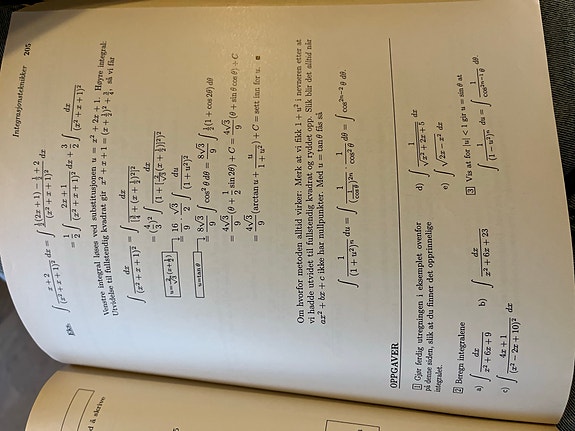 Integrasjonsteknikker 205
EKS: ∫ (x + 2)/(x² + x + 1)² dx = ∫ (½(2x + 1) − ½ + 2)/(x² + x + 1)² dx
= ½ ∫ (2x + 1)/(x² + x + 1)² dx + 3/2 ∫ dx/(x² + x + 1)²
Venstre integral løses ved substitusjonen u = x² + 2x + 1. Høyre integral:
Utvidelse til fullstendig kvadrat gir x² + x + 1 = (x + ½)² + ¾, så vi får
∫ dx/(x² + x + 1)² = ∫ dx/[¾ + (x + ½)²]²
= (4/3)² ∫ dx/(1 + [2/√3 (x + ½)]²)²
u = 2/√3 (x + ½) = 16/9 · √3/2 ∫ du/(1 + u²)²
u = tan θ = 8√3/9 ∫ cos² θ dθ = 8√3/9 ∫ ½(1 + cos 2θ) dθ
= 4√3/9 (θ + ½ sin 2θ) + C = 4√3/9 (θ + sin θ cos θ) + C
= 4√3/9 (arctan u + u/(1 + u²)) + C = sett inn for u.
Om hvorfor metoden alltid virker: Merk at vi fikk 1 + u² i nevneren etter at
vi hadde utvidet til fullstendig kvadrat og ryddet opp. Slik blir det alltid når
ax² + bx + c ikke har nullpunkter. Med u = tan θ fås så
∫ 1/(1 + u²)ⁿ du = ∫ 1/(1/cos θ)²ⁿ · 1/cos² θ dθ = ∫ cos²ⁿ⁻² θ dθ.
OPPGAVER
1 Gjør ferdig utregningen i eksemplet ovenfor
på denne siden, slik at du finner det opprinnelige
integralet.
2 Beregn integralene
a) ∫ dx/(x² + 6x + 9) b) ∫ dx/(x² + 6x + 23)
c) ∫ (4x + 1)/(x² − 2x + 10)² dx
d) ∫ 1/√(x² + 2x + 5) dx
e) ∫ √(2x − x²) dx
3 Vis at for |u| < 1 gir u = sin θ at
∫ 1/(1 − u²)ⁿ du = ∫ 1/cos²ⁿ⁻¹ θ dθ.
d å skrive